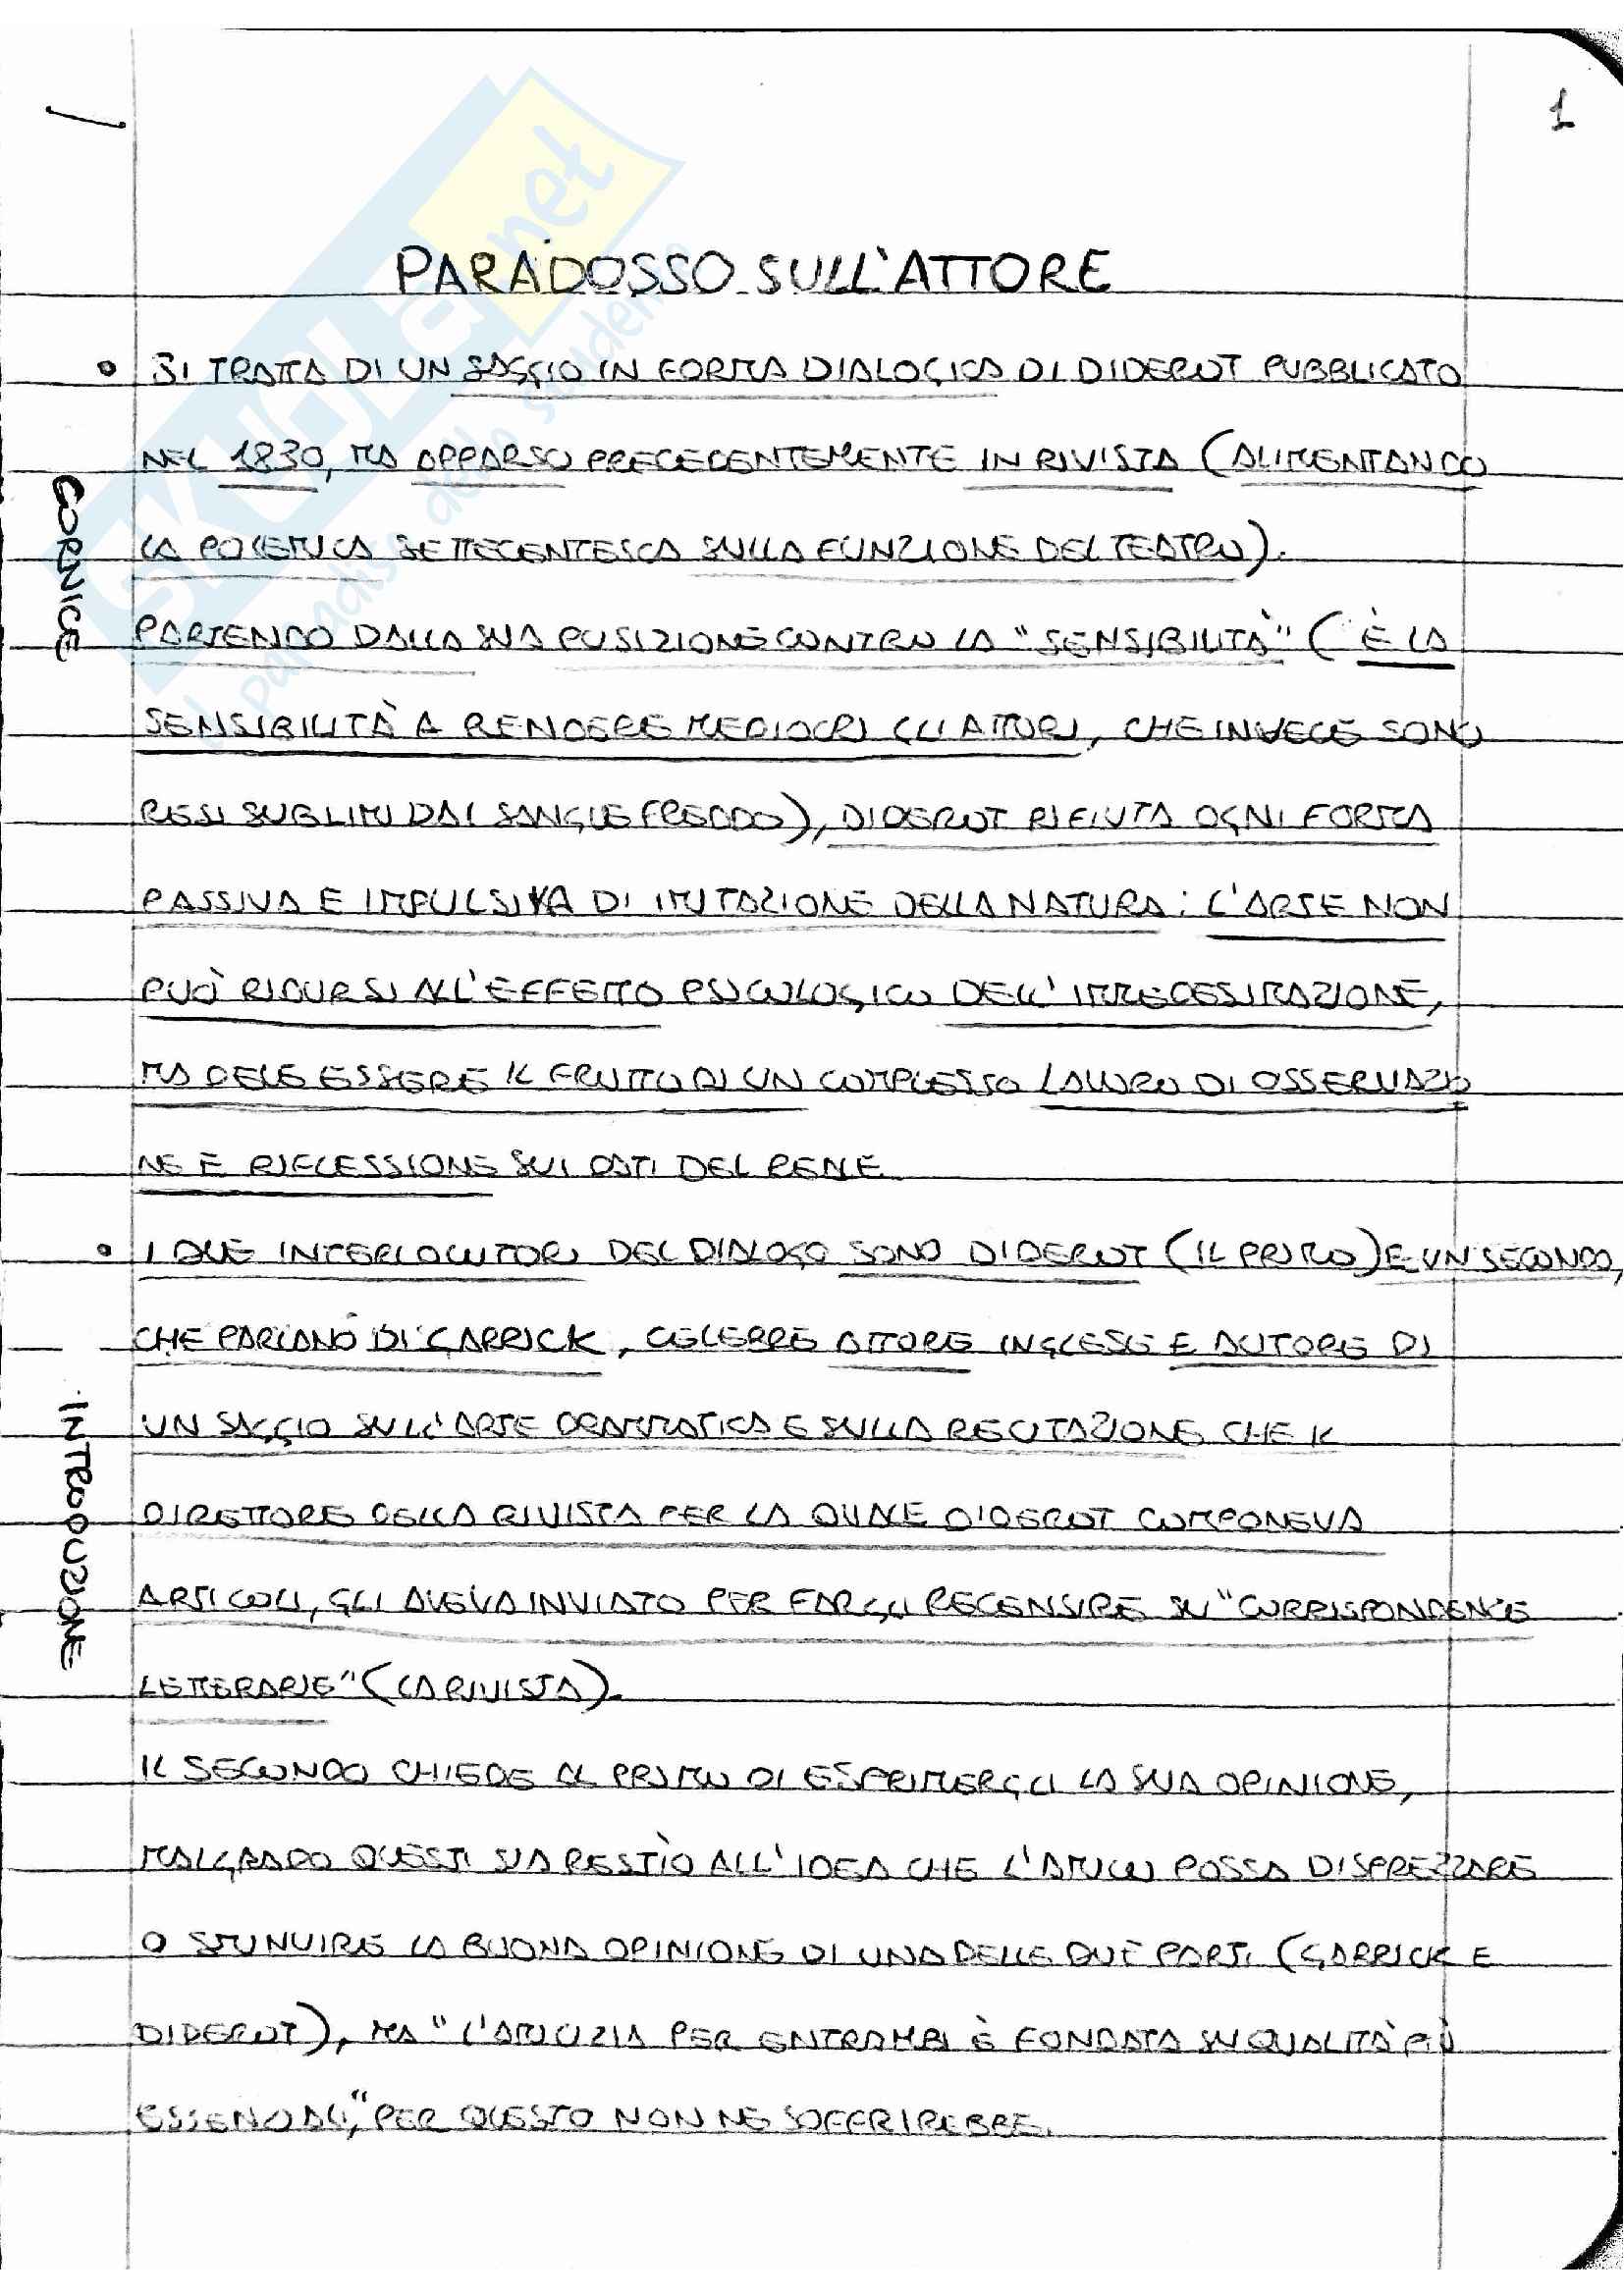 1
PARADOSSO SULL'ATTORE
• SI TRATTA DI UN SAGGIO IN FORMA DIALOGICA DI DIDEROT PUBBLICATO
NEL 1830, MA APPARSO PRECEDENTEMENTE IN RIVISTA (ALIMENTANDO
LA POLEMICA SETTECENTESCA SULLA FUNZIONE DEL TEATRO).
CORNICE
PARTENDO DALLA SUA POSIZIONE CONTRO LA "SENSIBILITÀ" (È LA
SENSIBILITÀ A RENDERE MEDIOCRI GLI ATTORI, CHE INVECE SONO
RESI SUBLIMI DAL SANGUE FREDDO), DIDEROT RIFIUTA OGNI FORMA
PASSIVA E IMPULSIVA DI IMITAZIONE DELLA NATURA: L'ARTE NON
PUÒ RIDURSI ALL'EFFETTO PSICOLOGICO DELL'IMMEDESIMAZIONE,
MA DEVE ESSERE IL FRUTTO DI UN COMPLESSO LAVORO DI OSSERVAZIO
NE E RIFLESSIONE SUI DATI DEL REALE
• I DUE INTERLOCUTORI DEL DIALOGO SONO DIDEROT (IL PRIMO) E UN SECONDO,
CHE PARLANO DI GARRICK, CELEBRE ATTORE INGLESE E AUTORE DI
INTRODUZIONE
UN SAGGIO SULL'ARTE DRAMMATICA E SULLA RECITAZIONE CHE IL
DIRETTORE DELLA RIVISTA PER LA QUALE DIDEROT COMPONEVA
ARTICOLI, GLI AVEVA INVIATO PER FARGLI RECENSIRE SU "CORRISPONDENCE
LETTERARIE" (LA RIVISTA).
IL SECONDO CHIEDE AL PRIMO DI ESPRIMERGLI LA SUA OPINIONE,
MALGRADO QUESTI SIA RESTÌO ALL'IDEA CHE L'AMICO POSSA DISPREZZARE
O SMINUIRE LA BUONA OPINIONE DI UNA DELLE DUE PARTI (GARRICK E
DIDEROT), MA "L'AMICIZIA PER ENTRAMBI È FONDATA SU QUALITÀ PIÙ
ESSENZIALI," PER QUESTO NON NE SOFFRIREBBE.
SKUOLA.net
il paradiso dello studente